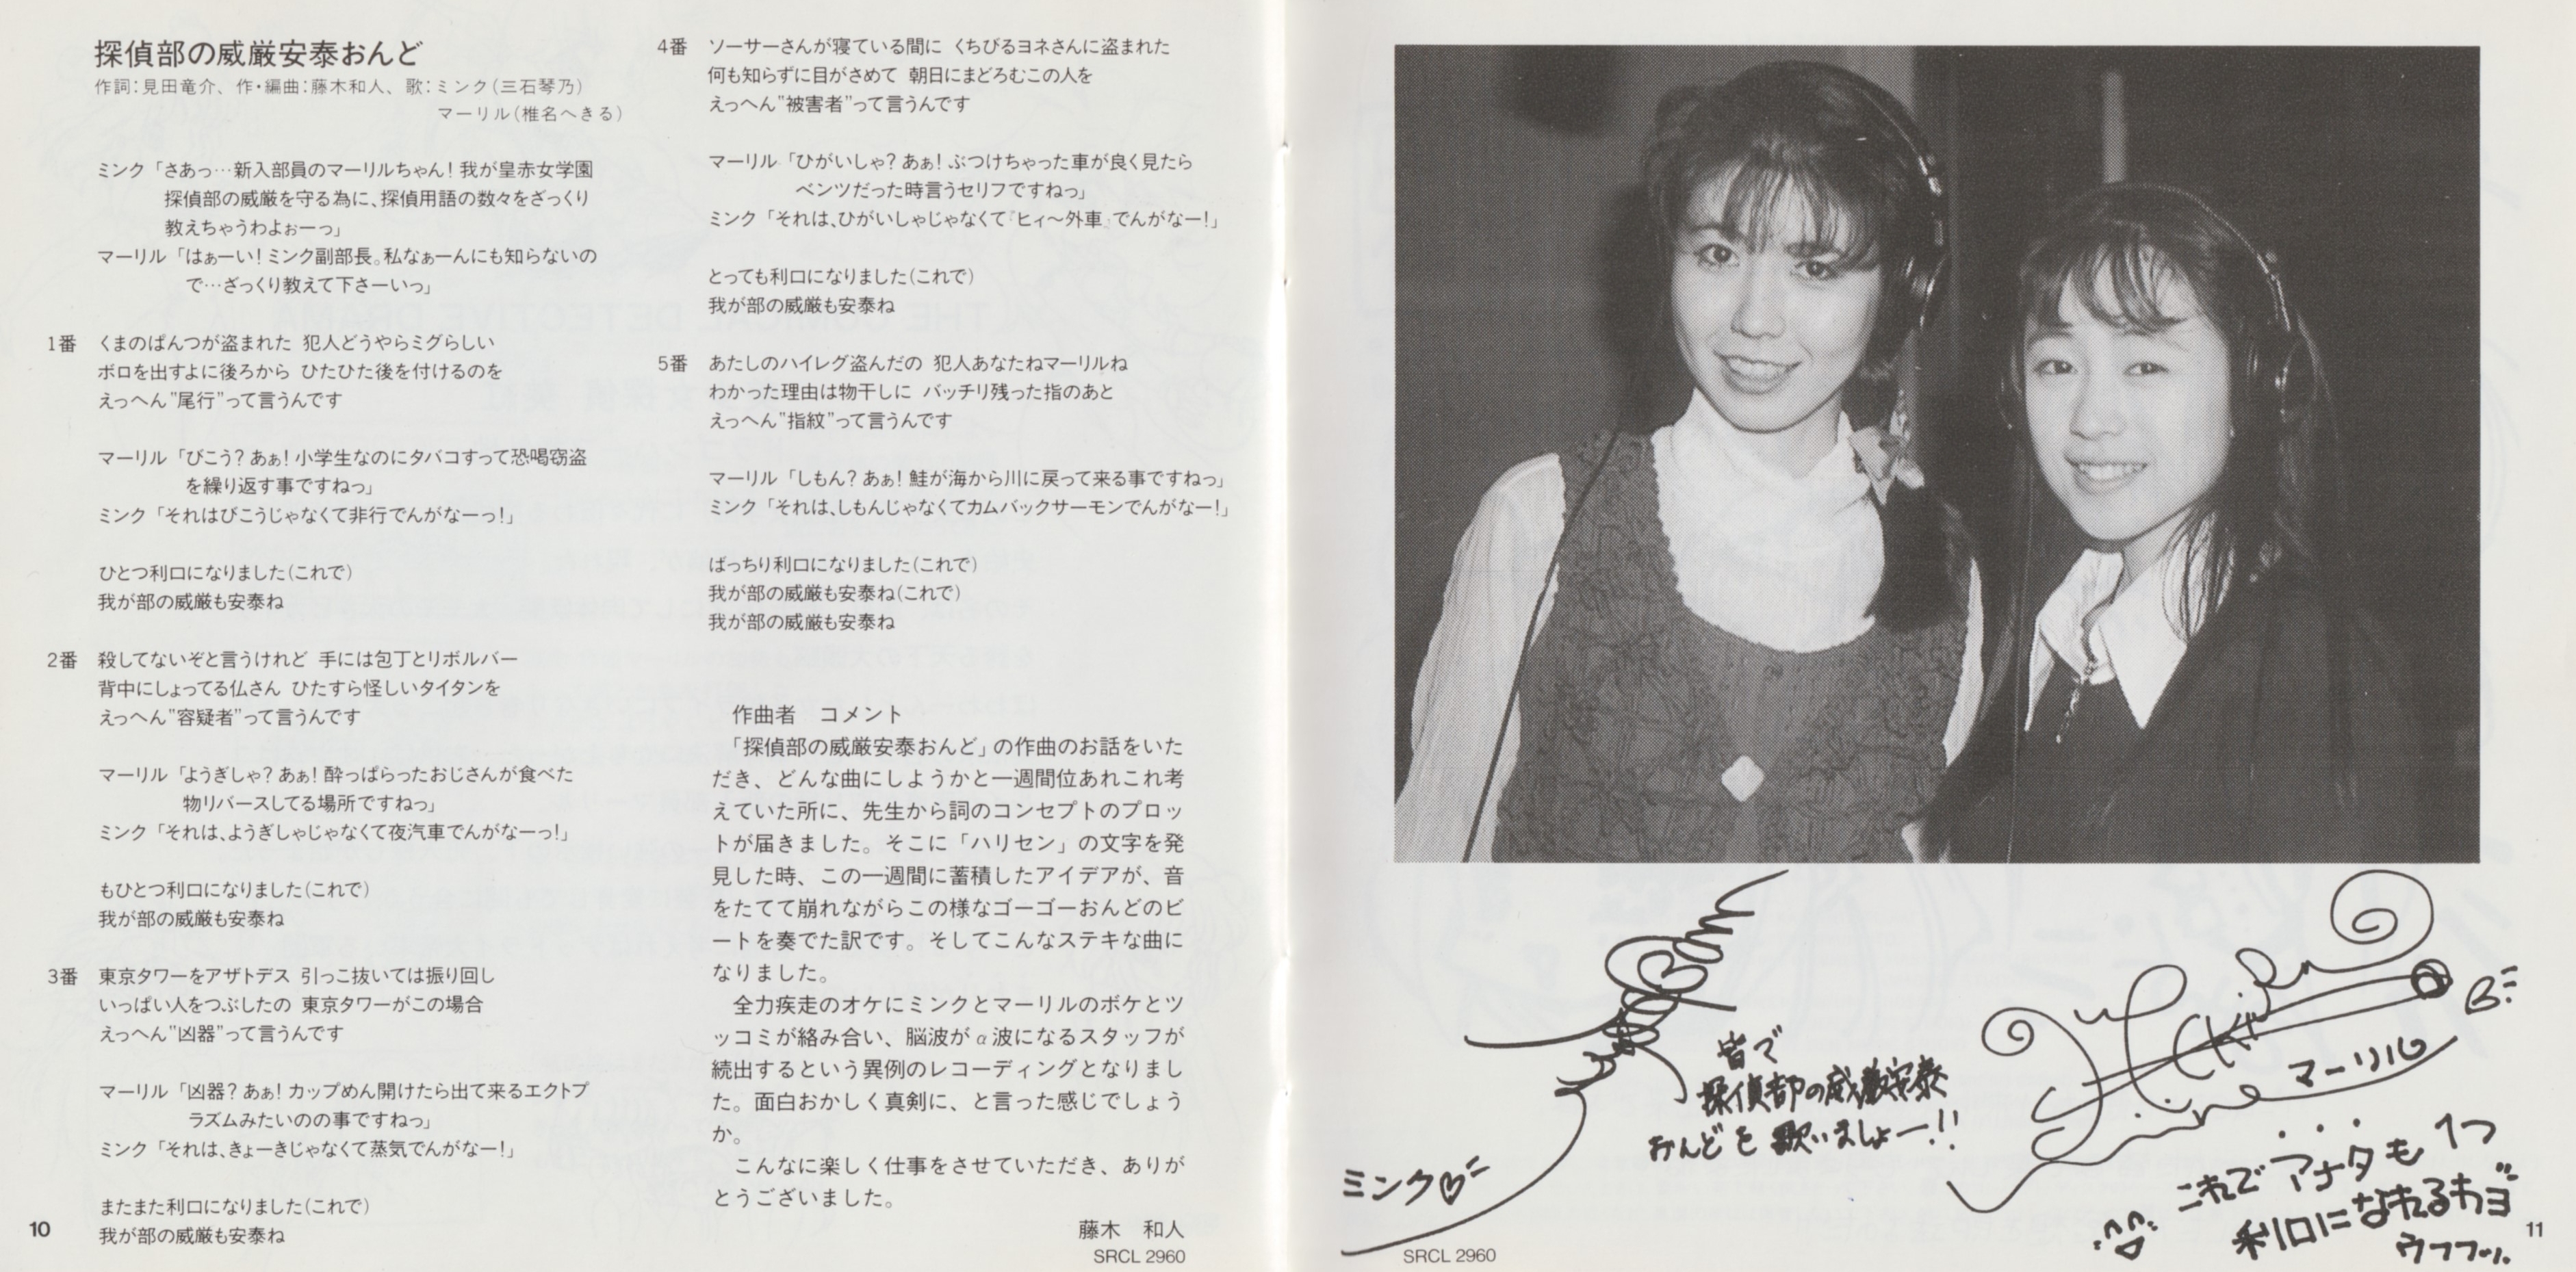 探偵部の威厳安泰おんど
作詞:見田竜介、作・編曲:藤木和人、歌:ミンク(三石琴乃)
マーリル(椎名へきる)
ミンク「さあっ…新入部員のマーリルちゃん!我が皇赤女学園
探偵部の威厳を守る為に、探偵用語の数々をざっくり
教えちゃうわよぉーっ」
マーリル「はぁーい!ミンク副部長。私なぁーんにも知らないの
で…ざっくり教えて下さーいっ」
1番 くまのぱんつが盗まれた 犯人どうやらミグらしい
ボロを出すよに後ろから ひたひた後を付けるのを
えっへん"尾行"って言うんです
マーリル「びこう?あぁ!小学生なのにタバコすって恐喝窃盗
を繰り返す事ですねっ」
ミンク「それはびこうじゃなくて非行でんがなーっ!」
ひとつ利口になりました(これで)
我が部の威厳も安泰ね
2番 殺してないぞと言うけれど 手には包丁とリボルバー
背中にしょってる仏さん ひたすら怪しいタイタンを
えっへん"容疑者"って言うんです
マーリル「ようぎしゃ?あぁ!酔っぱらったおじさんが食べた
物リバースしてる場所ですねっ」
ミンク「それは、ようぎしゃじゃなくて夜汽車でんがなーっ!」
もひとつ利口になりました(これで)
我が部の威厳も安泰ね
3番 東京タワーをアザトデス 引っこ抜いては振り回し
いっぱい人をつぶしたの 東京タワーがこの場合
えっへん"凶器"って言うんです
マーリル「凶器?あぁ!カップめん開けたら出て来るエクトプ
ラズムみたいのの事ですねっ」
ミンク「それは、きょーきじゃなくて蒸気でんがなー!」
またまた利口になりました(これで)
我が部の威厳も安泰ね
10
4番 ソーサーさんが寝ている間に くちびるヨネさんに盗まれた
何も知らずに目がさめて 朝日にまどろむこの人を
えっへん"被害者"って言うんです
マーリル「ひがいしゃ?あぁ!ぶつけちゃった車が良く見たら
ベンツだった時言うセリフですねっ」
ミンク「それは、ひがいしゃじゃなくて『ヒィ〜外車』でんがなー!」
とっても利口になりました(これで)
我が部の威厳も安泰ね
5番 あたしのハイレグ盗んだの 犯人あなたねマーリルね
わかった理由は物干しに バッチリ残った指のあと
えっへん"指紋"って言うんです
マーリル「しもん?あぁ!鮭が海から川に戻って来る事ですねっ」
ミンク「それは、しもんじゃなくてカムバックサーモンでんがなー!」
ばっちり利口になりました(これで)
我が部の威厳も安泰ね(これで)
我が部の威厳も安泰ね
作曲者 コメント
「探偵部の威厳安泰おんど」の作曲のお話をいた
だき、どんな曲にしようかと一週間位あれこれ考
えていた所に、先生から詞のコンセプトのプロッ
トが届きました。そこに「ハリセン」の文字を発
見した時、この一週間に蓄積したアイデアが、音
をたてて崩れながらこの様なゴーゴーおんどのビ
ートを奏でた訳です。そしてこんなステキな曲に
なりました。
全力疾走のオケにミンクとマーリルのボケとツ
ッコミが絡み合い、脳波がα波になるスタッフが
続出するという異例のレコーディングとなりまし
た。面白おかしく真剣に、と言った感じでしょう
か。
こんなに楽しく仕事をさせていただき、ありが
とうございました。
藤木 和人
SRCL 2960
皆で
探偵部の威厳安泰
おんどを歌いましょー!!
ミンク
マーリル
これでアナタも1つ
利口になれるわヨ
ウフフッ
SRCL 2960
11